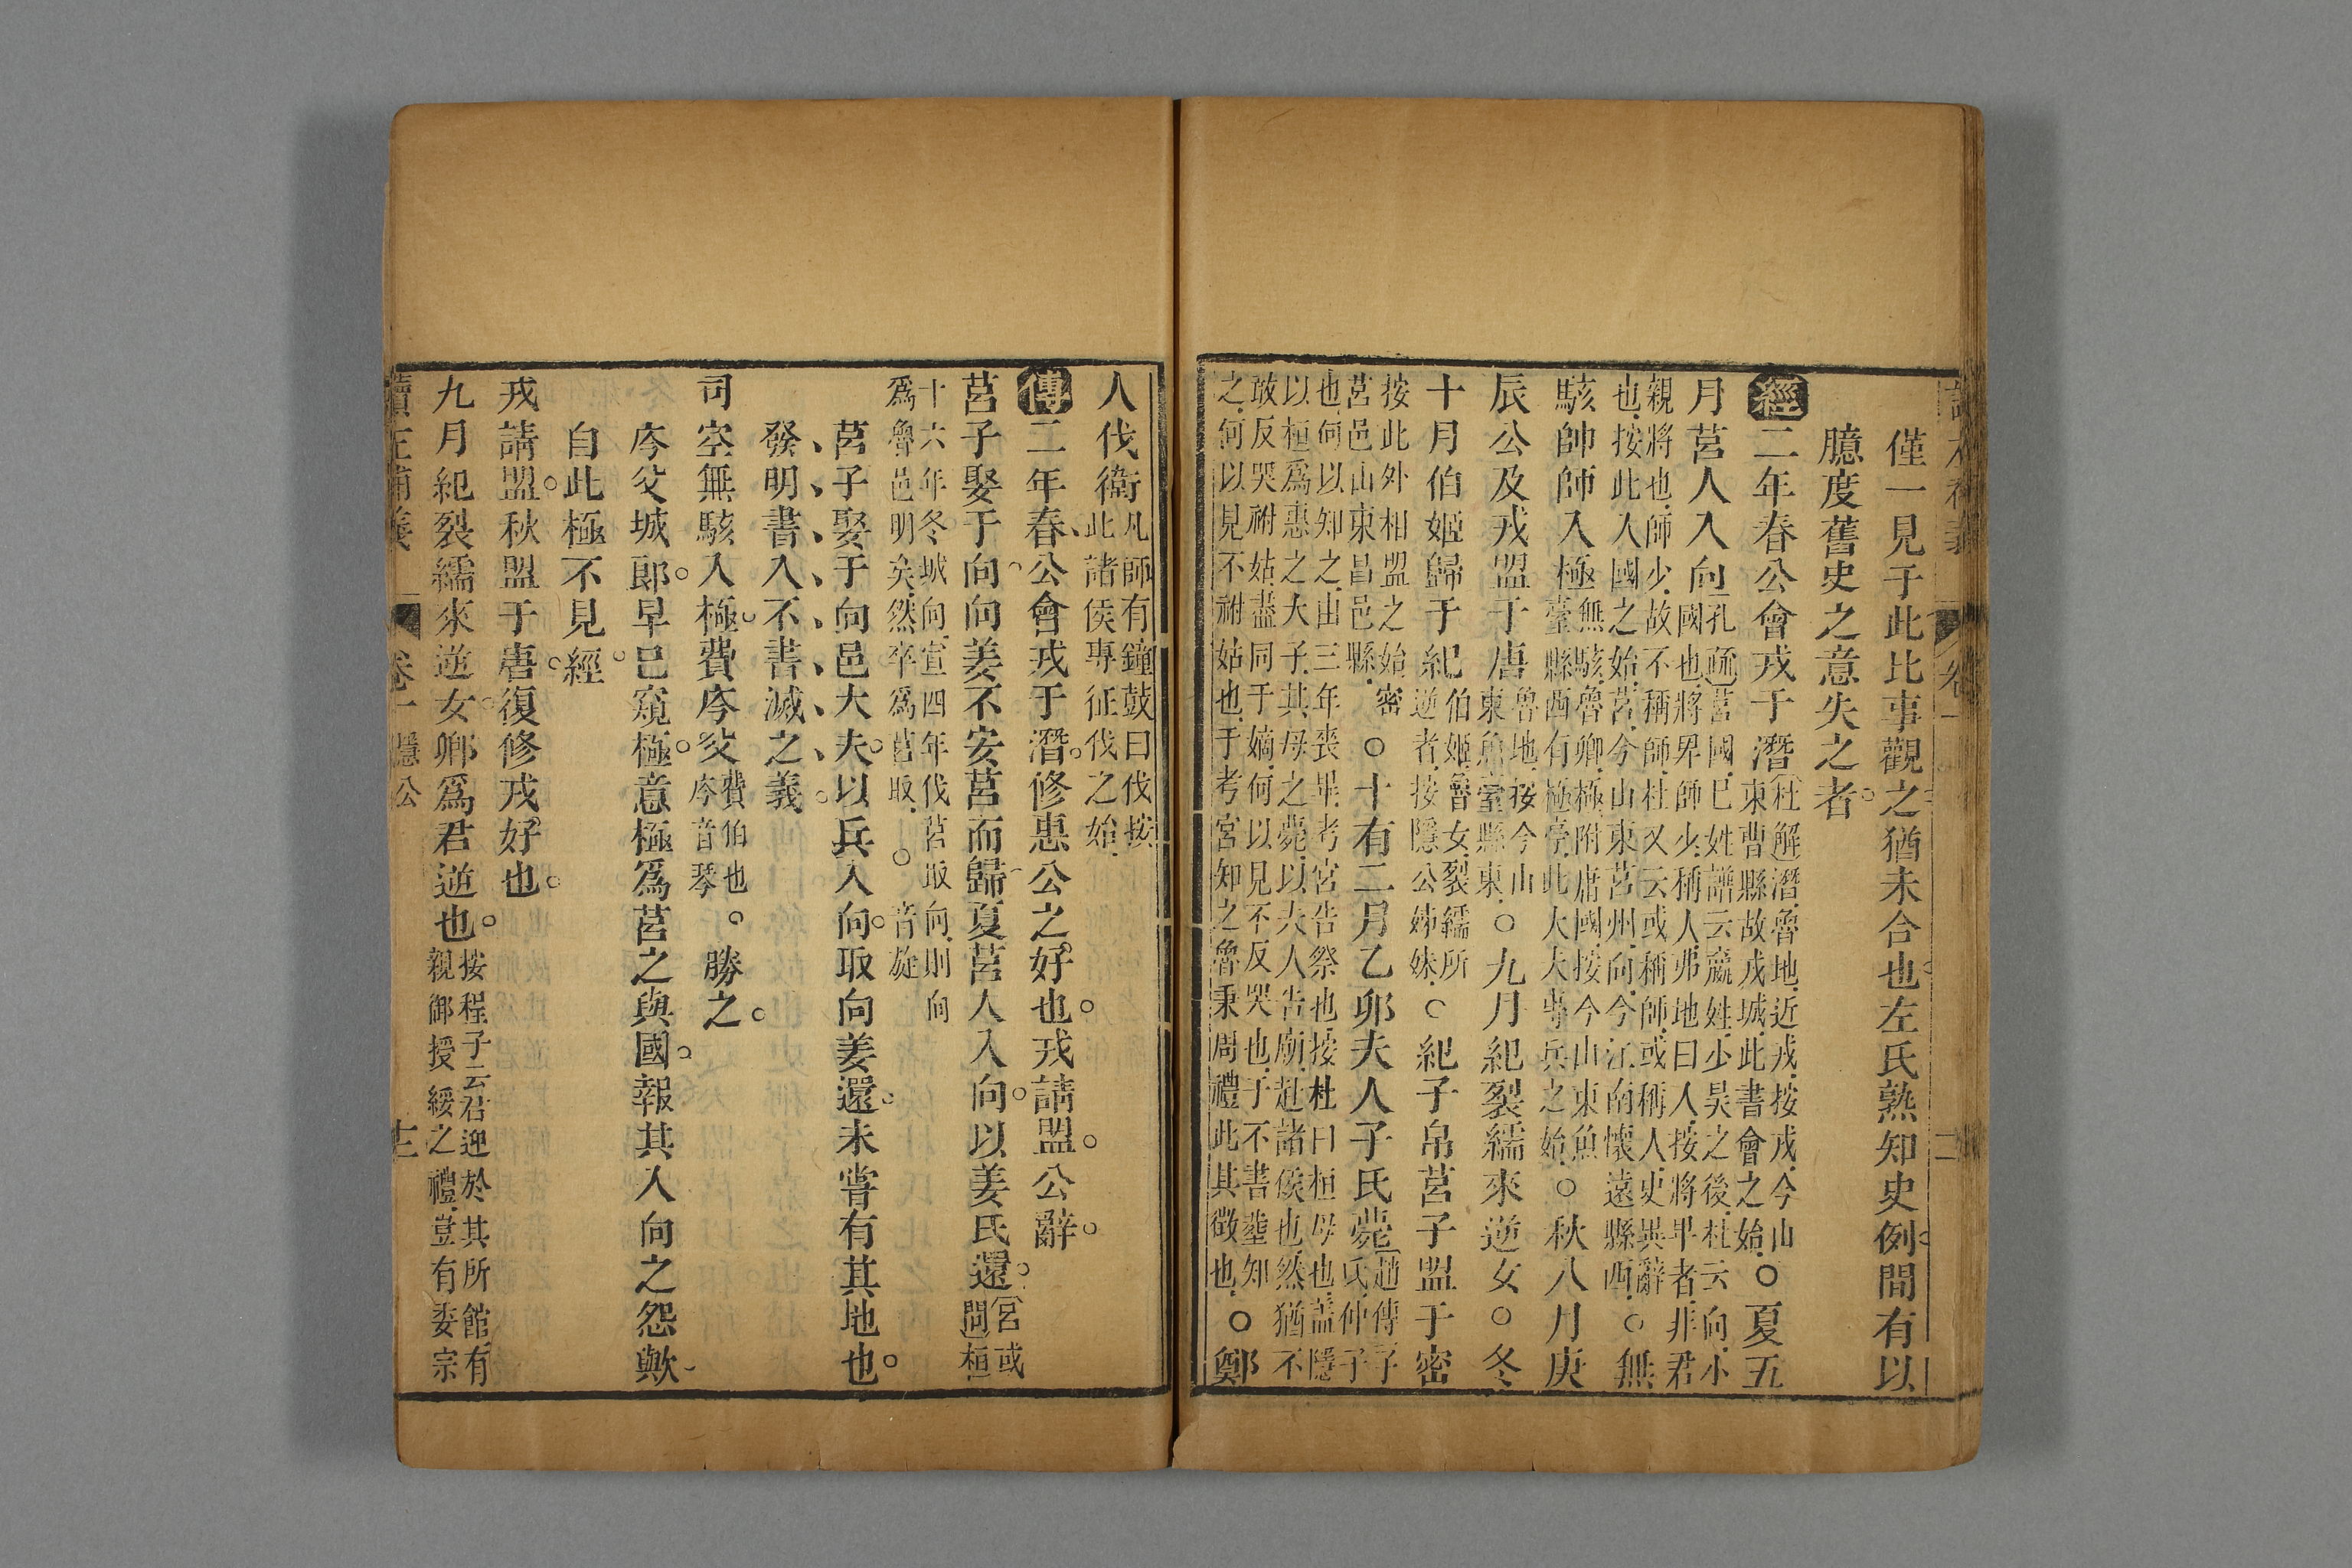 僅一見于此比事觀之猶未合也左氏熟知史例間有以
臆度舊史之意失之者
經二年春公會戎于潛杜解潛魯地近戎按戎今山東曹縣故戎城此書會之始○夏五
月莒人入向孔疏莒國巳姓譜云嬴姓少昊之後杜云向小國也將卑師少稱人弗地曰人按將卑者非君
親將也師少故不稱師杜又云或稱師或稱人史異辭也按此入國之始莒今山東莒州向今江南懷遠縣西○無
駭帥師入極無駭魯卿極附庸國按今山東魚臺縣西有極亭此大夫專兵之始○秋八月庚
辰公及戎盟于唐魯地按今山東魚臺縣東○九月紀裂繻來逆女○冬
十月伯姬歸于紀伯姬魯女裂繻所逆者按隱公姊妹○紀子帛莒子盟于密
按此外相盟之始密莒邑山東昌邑縣○十有二月乙卯夫人子氏薨趙傳子氏仲子
也何以知之由三年喪畢考宮告祭也按杜曰桓母也蓋隱以桓爲惠之大子其母之薨以夫人告廟赴諸侯也然猶不
敢反哭祔姑盡同于嫡何以見不反哭也于不書塟知之何以見不祔姑也于考宮知之魯秉周禮此其徵也○鄭
人伐衛凡師有鐘鼓曰伐按此諸侯專征伐之始
傳二年春公會戎于潛修惠公之好也戎請盟公辭
莒子娶于向向姜不安莒而歸夏莒人入向以姜氏還宮或問桓
十六年冬城向宣四年伐莒取向則向爲魯邑明矣然卒爲莒取○音旋
莒子娶于向邑大夫以兵入向取向姜還未嘗有其地也
發明書入不書滅之義
司空無駭入極費庈父費伯也庈音琴○勝之
庈父城郎早巳窺極意極爲莒之與國報其入向之怨歟
自此極不見經
戎請盟秋盟于唐復修戎好也
九月紀裂繻來逆女卿爲君逆也按程子云君迎於其所館有親御授綏之禮豈有委宗
讀左補義 卷一 隱公 十二